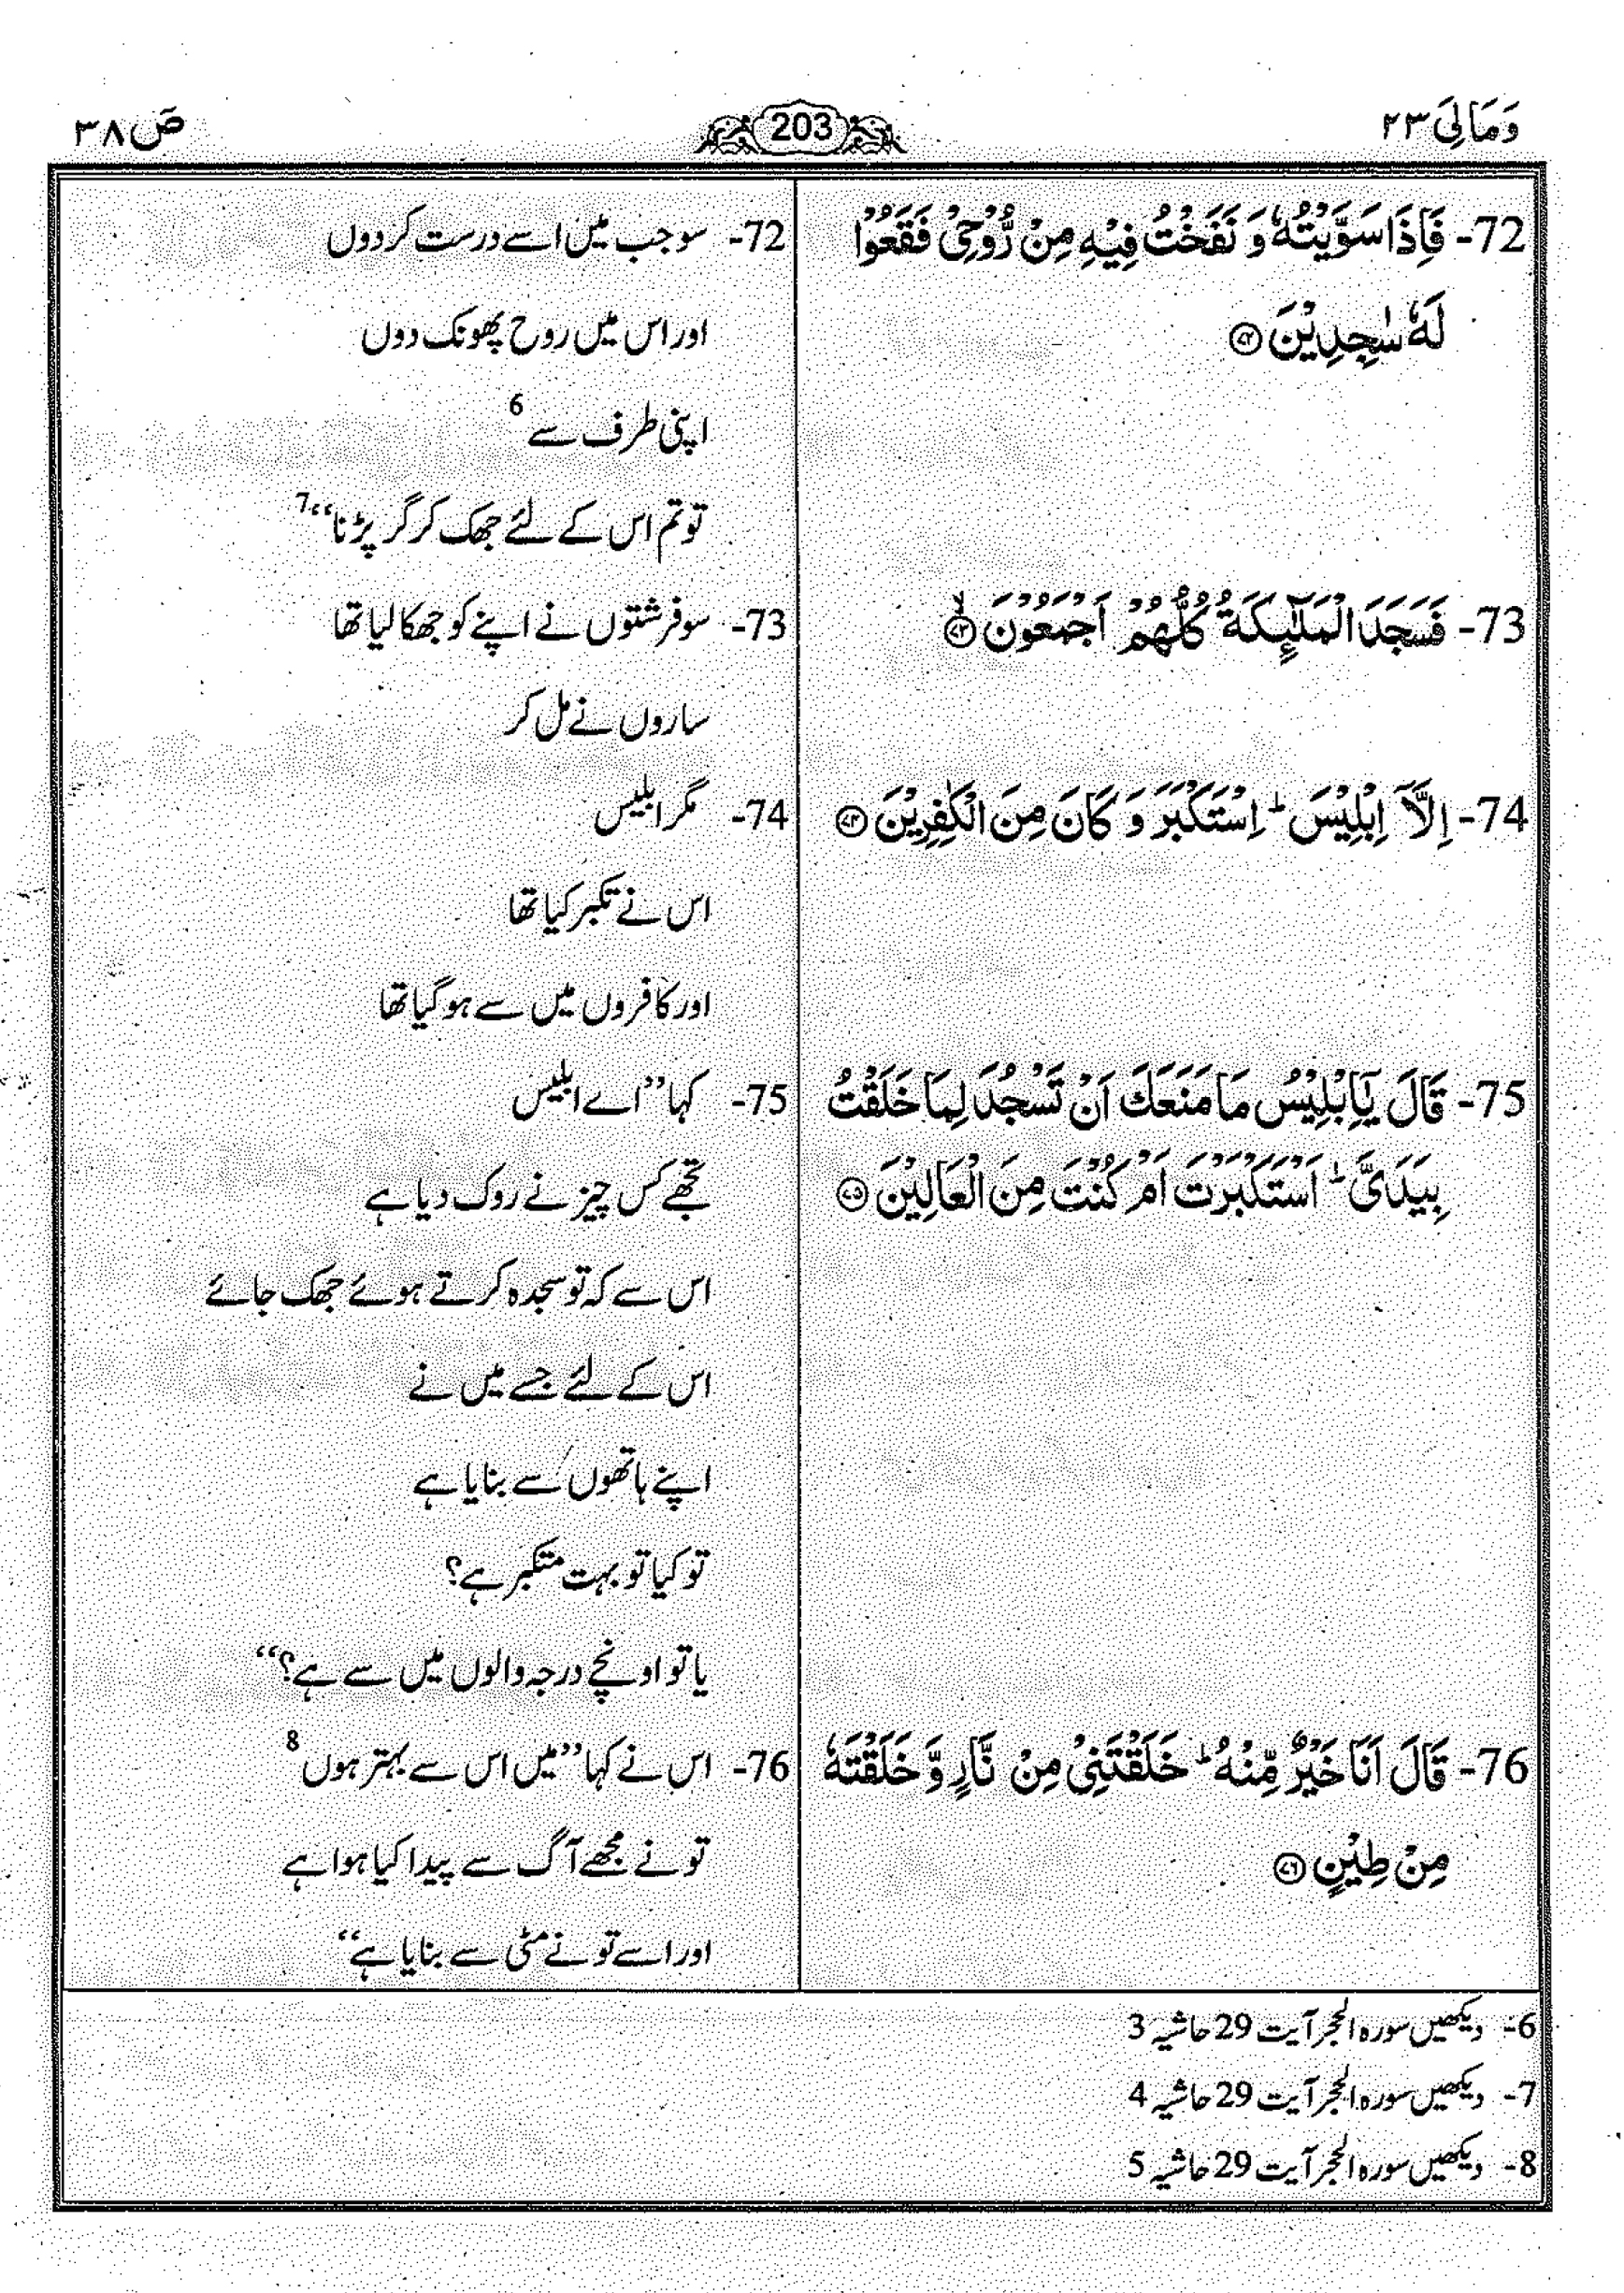 وَمَالِیَ ۲۳
203
صٓ ۳۸
72- فَاِذَا سَوَّیْتُهٗ وَ نَفَخْتُ فِیْهِ مِنْ رُّوْحِیْ فَقَعُوْا
لَهٗ سٰجِدِیْنَ ﴿۷۲﴾
72- سو جب میں اسے درست کردوں
اور اس میں روح پھونک دوں
اپنی طرف سے 6
تو تم اس کے لئے جھک کر گر پڑنا‘‘ 7
73- فَسَجَدَ الْمَلٰٓىِٕكَةُ كُلُّهُمْ اَجْمَعُوْنَ ﴿۷۳﴾ۙ
73- سو فرشتوں نے اپنے کو جھکا لیا تھا
ساروں نے مل کر
74- اِلَّاۤ اِبْلِیْسَ ؕ اِسْتَكْبَرَ وَ كَانَ مِنَ الْكٰفِرِیْنَ ﴿۷۴﴾
74- مگر ابلیس
اس نے تکبر کیا تھا
اور کافروں میں سے ہوگیا تھا
75- قَالَ یٰۤاِبْلِیْسُ مَا مَنَعَكَ اَنْ تَسْجُدَ لِمَا خَلَقْتُ
بِیَدَیَّ ؕ اَسْتَكْبَرْتَ اَمْ كُنْتَ مِنَ الْعَالِیْنَ ﴿۷۵﴾
75- کہا ’’اے ابلیس
تجھے کس چیز نے روک دیا ہے
اس سے کہ تو سجدہ کرتے ہوئے جھک جائے
اس کے لئے جسے میں نے
اپنے ہاتھوں سے بنایا ہے
تو کیا تو بہت متکبر ہے؟
یا تو اونچے درجہ والوں میں سے ہے؟‘‘
76- قَالَ اَنَا خَیْرٌ مِّنْهُ ؕ خَلَقْتَنِیْ مِنْ نَّارٍ وَّ خَلَقْتَهٗ
مِنْ طِیْنٍ ﴿۷۶﴾
76- اس نے کہا ’’میں اس سے بہتر ہوں 8
تو نے مجھے آگ سے پیدا کیا ہوا ہے
اور اسے تو نے مٹی سے بنایا ہے‘‘
6- دیکھیں سورہ الحجر آیت 29 حاشیہ 3
7- دیکھیں سورہ الحجر آیت 29 حاشیہ 4
8- دیکھیں سورہ الحجر آیت 29 حاشیہ 5